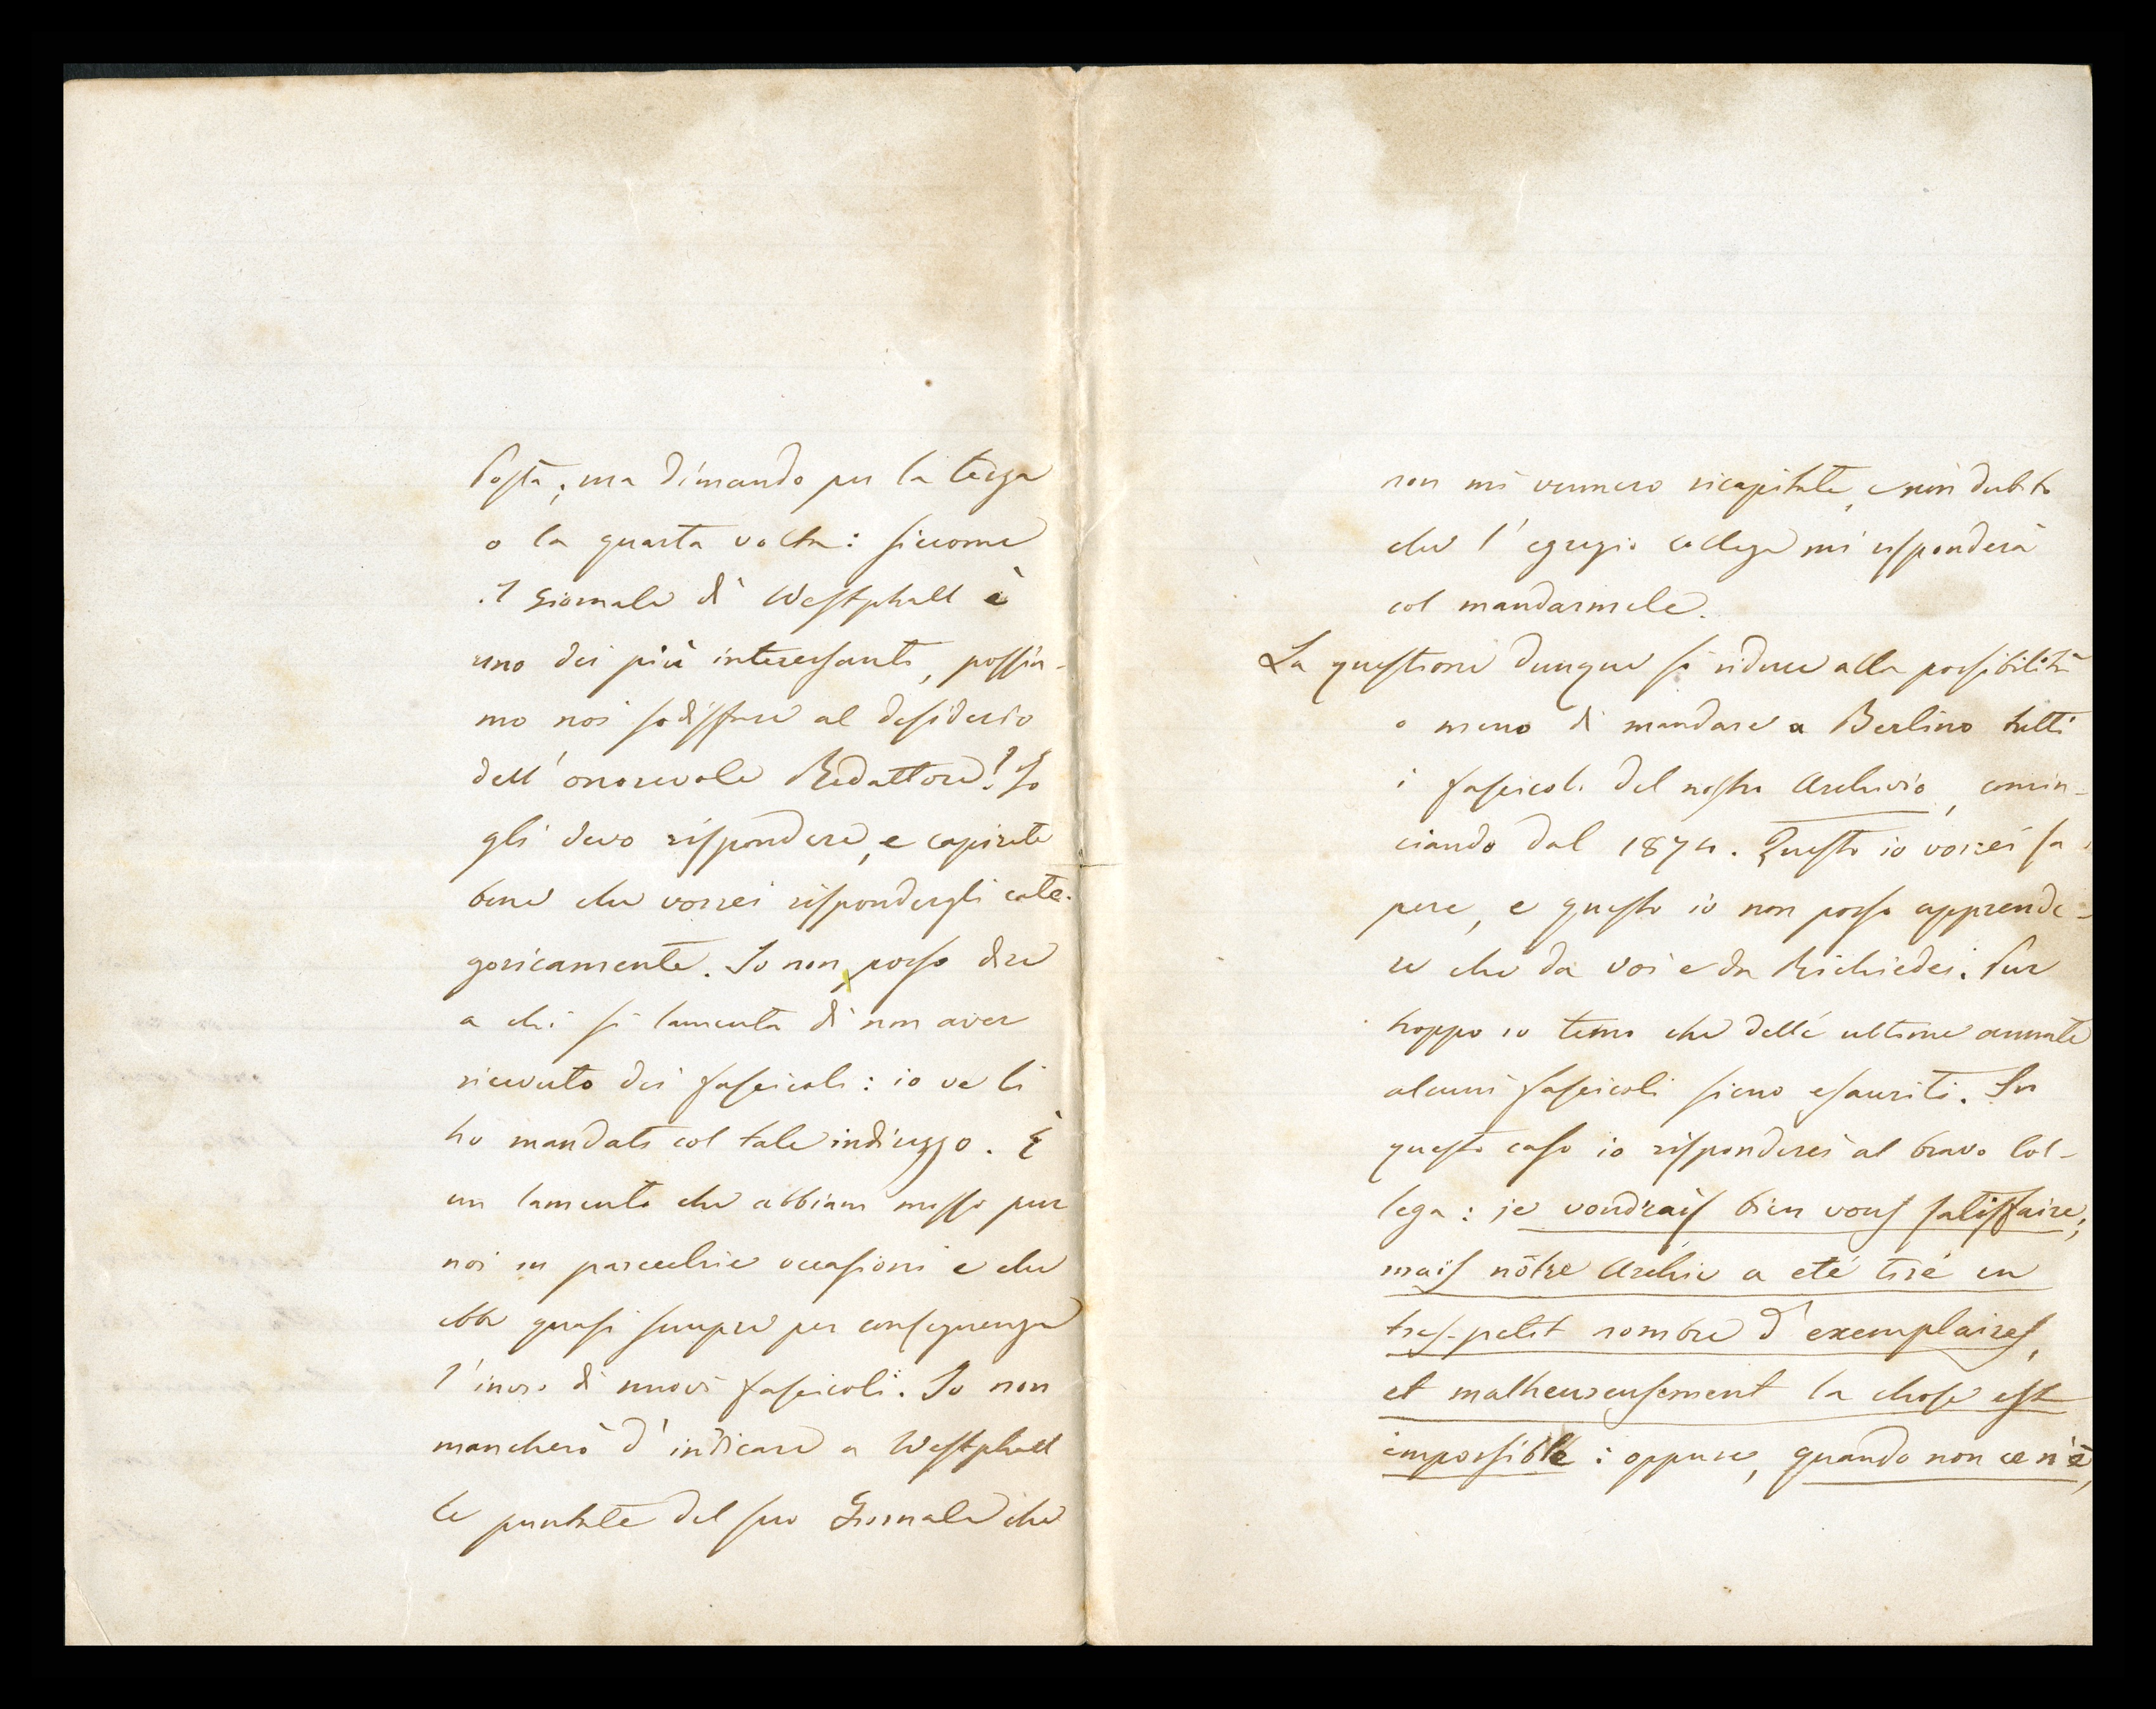 Posta; ma dimando per la terza
o la quarta volta: siccome
il Giornale di Westphall è
uno dei più interessanti, possia-
mo noi sodisfare al desiderio
dell'onorevole Redattore? Io
gli devo rispondere, e capirete
bene che vorrei rispondergli cate-
goricamente. Io non posso dire
a chi si lamenta di non aver
ricevuto dei fascicoli: io ve li
ho mandati col tale indirizzo. È
un lamento che abbiam messo pur
noi in parecchie occasioni e che
ebbe quasi sempre per conseguenza
l'invio di nuovi fascicoli. Io non
mancherò d'indicare a Westphall
le puntate del suo Giornale che
non mi vennero ricapitate, e non dubito
che l'egregio collega mi risponderà
col mandarmele.
La questione dunque si riduce alla possibilità
o meno di mandare a Berlino tutti
i fascicoli del nostro Archivio, comin-
ciando dal 1874. Questo io vorrei sa-
pere, e questo io non posso apprende-
re che da voi e da Richiedei. Pur
troppo io temo che delle ultime annate
alcuni fascicoli sieno esauriti. In
questo caso io risponderei al bravo Col-
lega: je voudrais bien vous satisfaire,
mais nôtre Archiv a eté tiré en
tres-petit nombre d'exemplaires,
et malheureusement la chose est
impossible: oppure, quando non ce n'è,